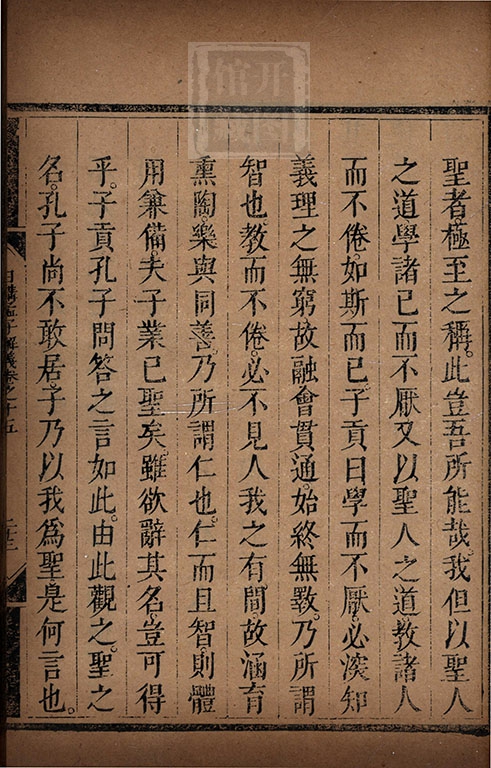 聖者極至之稱。此豈吾所能哉。我但以聖人
之道學諸已而不厭又以聖人之道教諸人
而不倦。如斯而已。子貢曰學而不厭。必深知
義理之無窮。故融會貫通。始終無斁。乃所謂
智也。教而不倦。必不見人我之有間。故涵育
熏陶。樂與同善。乃所謂仁也。仁而且智。則體
用兼備。夫子業已聖矣。雖欲辭其名。豈可得
乎。子貢孔子問答之言如此。由此觀之。聖之
名。孔子尚不敢居。子乃以我為聖是何言也。
日講孟子解義卷之十五